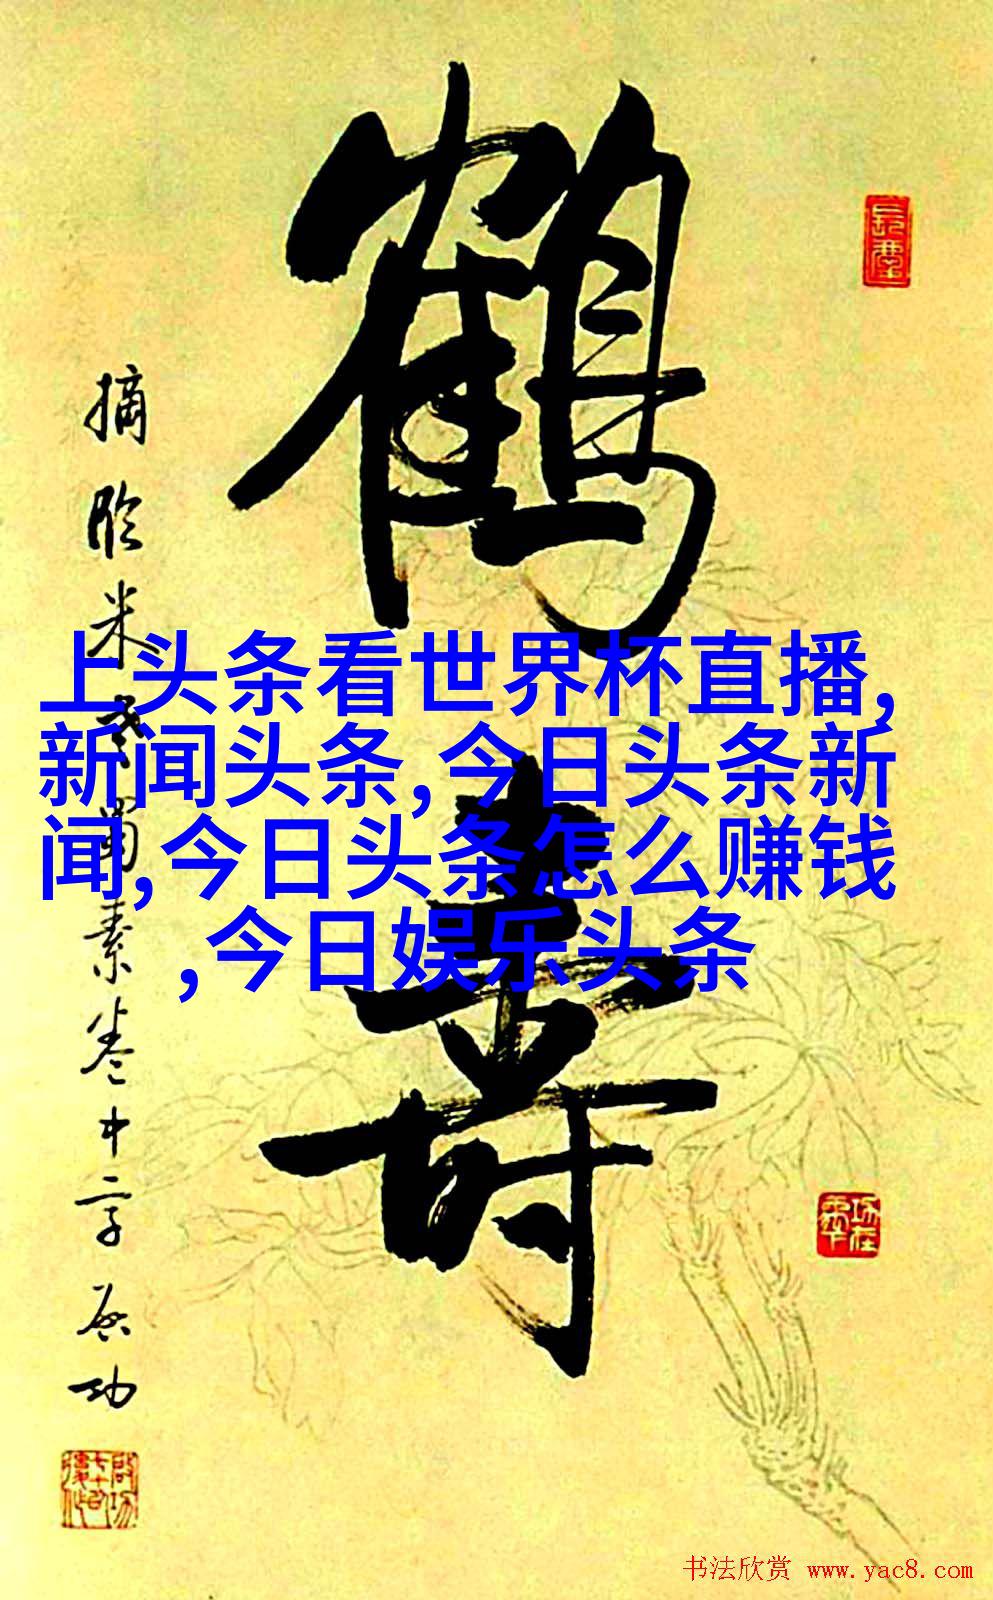 鹤寿
摘临米老蜀素卷中字启功
上头条看世界杯直播,
新闻头条,今日头条新
闻,今日头条怎么赚钱
,今日娱乐头条
书法欣赏 www.yac8.com